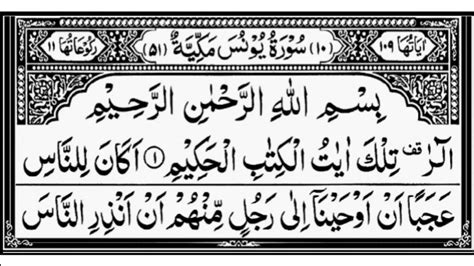 اٰیَاتُهَا ۱۰۹ (۱۰) سُوْرَةُ يُوْنُسَ مَكِّيَّةٌ (۵۱) رُكُوْعَاتُهَا ۱۱
بِسْمِ اللهِ الرَّحْمٰنِ الرَّحِيْمِ
الٓرٰ قف تِلْكَ اٰيٰتُ الْكِتٰبِ الْحَكِيْمِ ۝۱ اَكَانَ لِلنَّاسِ
عَجَبًا اَنْ اَوْحَيْنَاۤ اِلٰى رَجُلٍ مِّنْهُمْ اَنْ اَنْذِرِ النَّاسَ